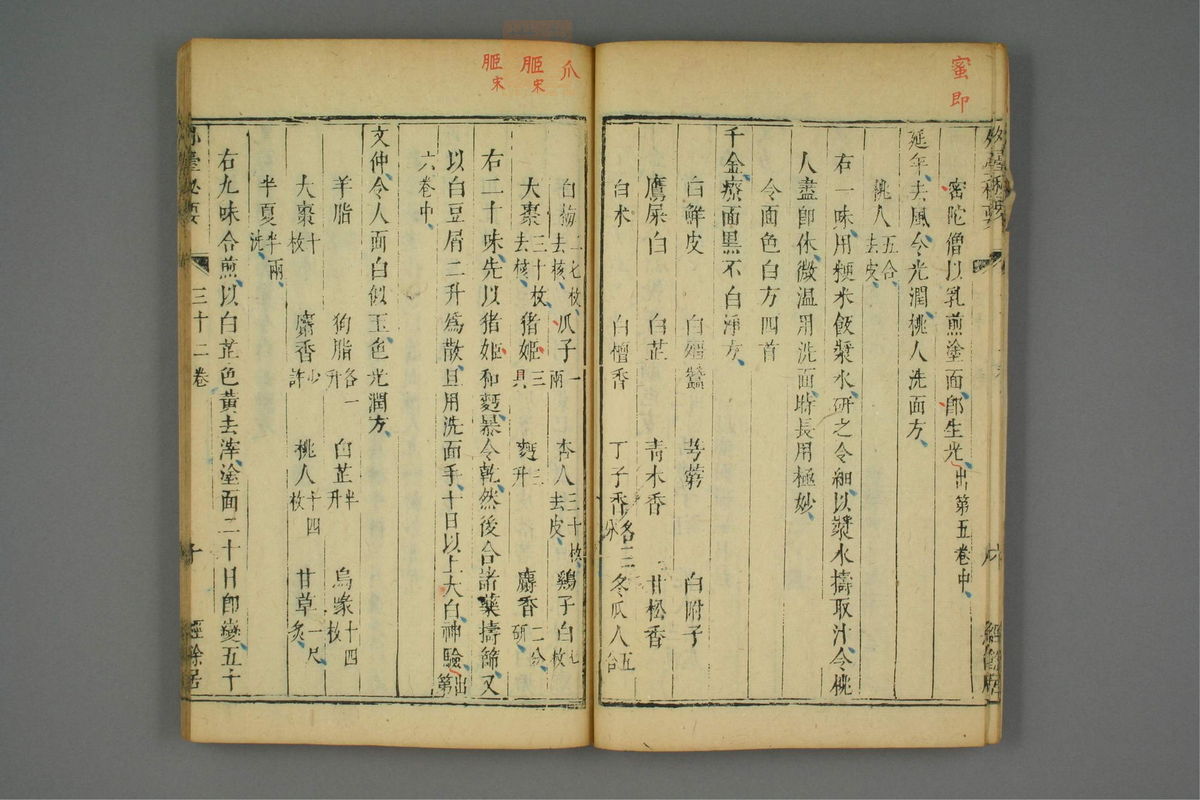 蜜即
密陀僧以乳煎塗面、卽生光、出第五卷中、
延年、去風令光潤、桃人洗面方、
桃人五合、去皮、
右一味、用粳米飯漿水、研之令細、以漿水擣取汁、令桃
人盡卽休、微温用洗面、時長用極妙、
令面色白方四首
千金、療面黒不白淨方、
白鮮皮 白殭蠶 芎藭 白附子
鷹屎白 白芷 青木香 甘松香
白术 白檀香 丁子香各三分 冬瓜人五合
爪
䐅宋
䐅宋
白梅二七枚、去核、 瓜子一兩 杏人三十枚、去皮、 鷄子白七枚
大棗三十枚、去核、 猪䐅三具 麪三升 麝香二分、研、
右二十味、先以猪䐅和麪、暴令乾、然後合諸藥擣篩、又
以白豆屑二升爲散、旦用洗面手、十日以上太白、神驗、出第
六卷中、
文仲、令人面白似玉、色光潤方、
羊脂 狗脂各一升 白芷半升 烏喙十四枚
大棗十枚 麝香少許 桃人十四枚 甘草一尺、炙、
半夏半兩、洗、
右九味合煎、以白芷色黃去滓、塗面二十日卽變、五十
三十二卷
經餘居